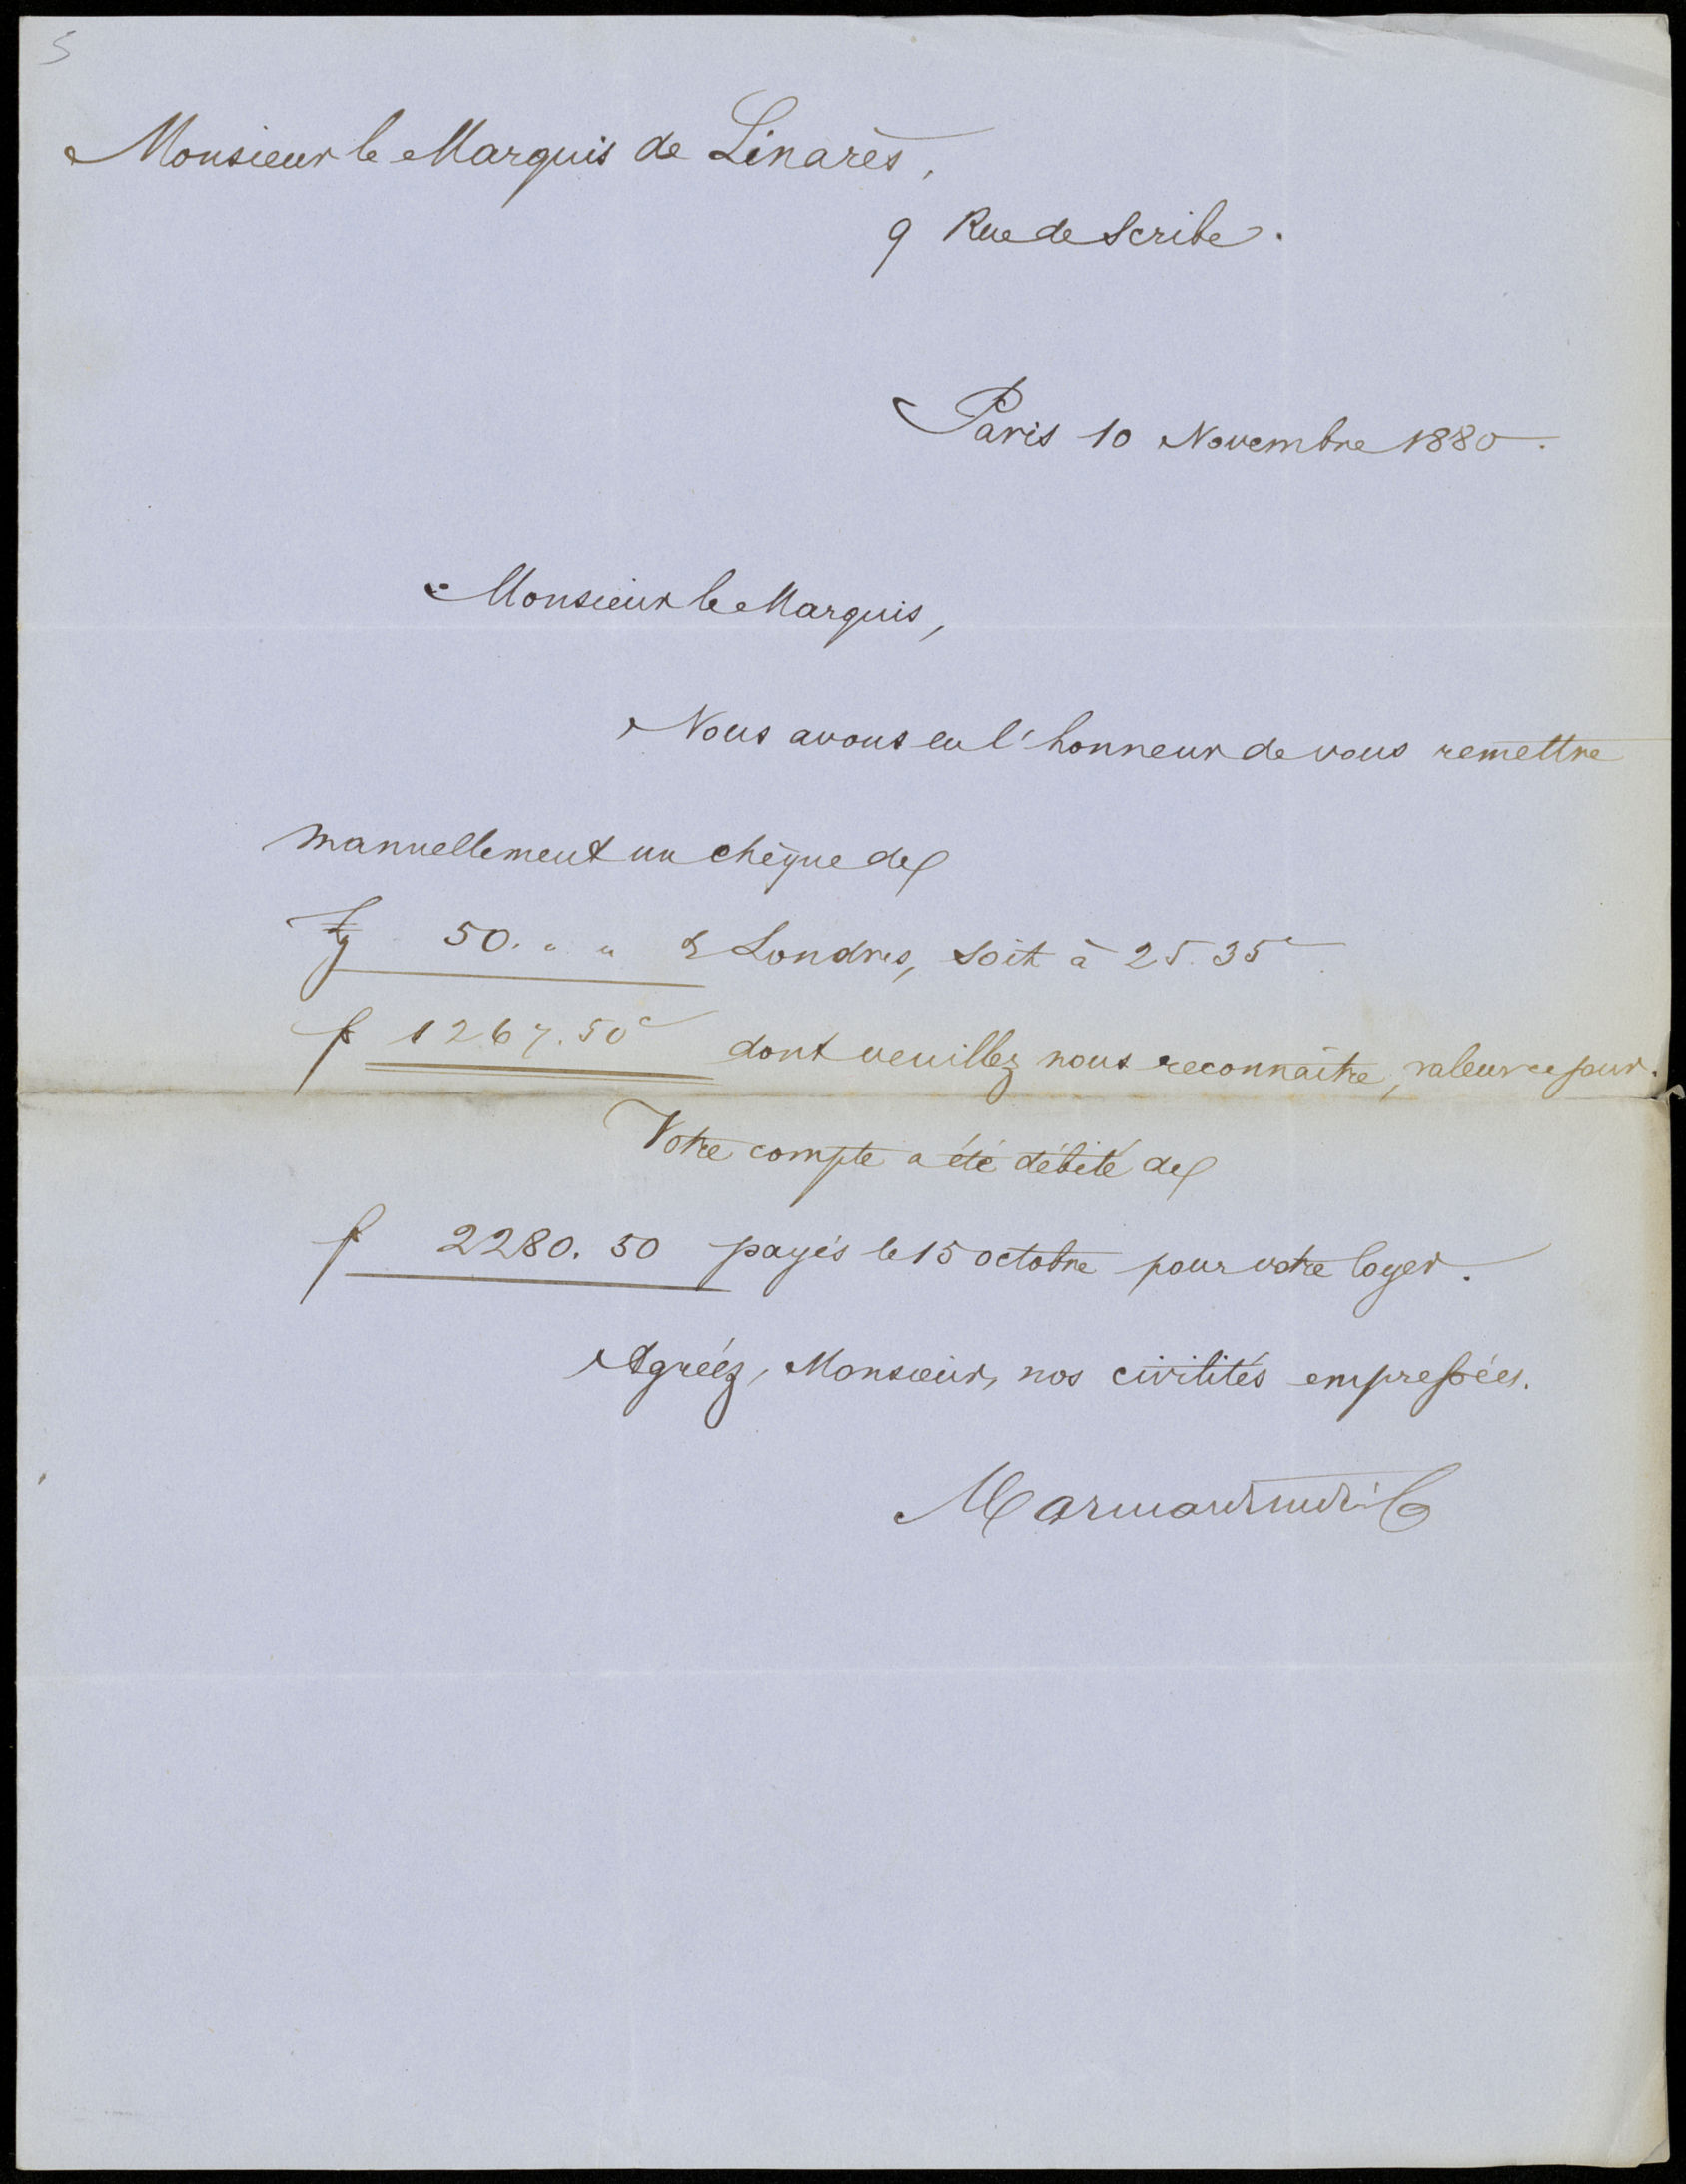 5
Monsieur le Marquis de Linarès,
9 Rue de Scribe.
Paris 10 Novembre 1880.
Monsieur le Marquis,
Nous avons eu l'honneur de vous remettre
manuellement un chèque de
£ 50. " " s/ Londres, soit à 25.35c
f 1267.50c dont veuillez nous reconnaître, valeur ce jour.
Votre compte a été débité de
f 2280.50 payés le 15 octobre pour votre loyer.
Agréez, Monsieur, nos civilités empressées.